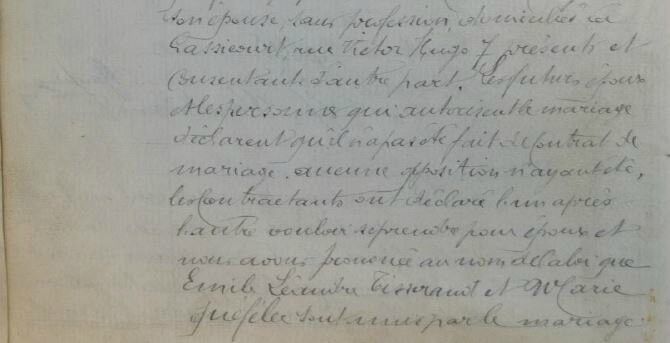 son épouse, sans profession, domiciliés à
Lassicourt, rue Victor Hugo 7 présents et
consentants d'autre part. Les futurs époux
et les personnes qui autorisent le mariage
déclarent qu'il n'a pas été fait de contrat de
mariage. aucune opposition n'ayant été,
les contractants ont déclaré l'un après
l'autre vouloir se prendre pour époux et
nous avons prononcé au nom de la loi que
Emile Léandre Tisserand et Marie
sont unis par le mariage